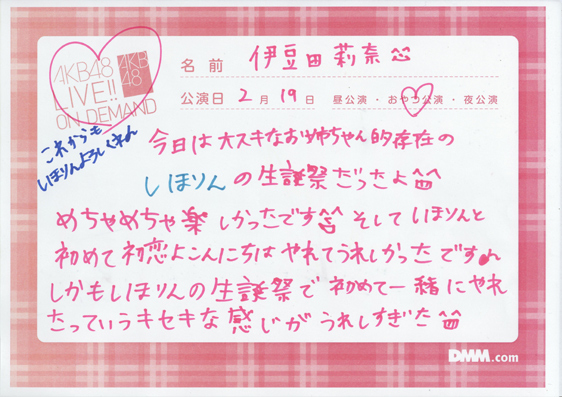 AKB48
LIVE!!
ON DEMAND
AKB
48
名前 伊豆田莉奈
公演日 2月19日 昼公演・おやつ公演・夜公演
これからも
しほりんよろしくねん
今日は大スキなお姉ちゃん的存在の
しほりんの生誕祭だったよ
めちゃめちゃ楽しかったです そしてしほりんと
初めて初恋よこんにちはやれてうれしかったです
しかもしほりんの生誕祭で初めて一緒にやれ
たっていうキセキな感じがうれしすぎた
DMM.com